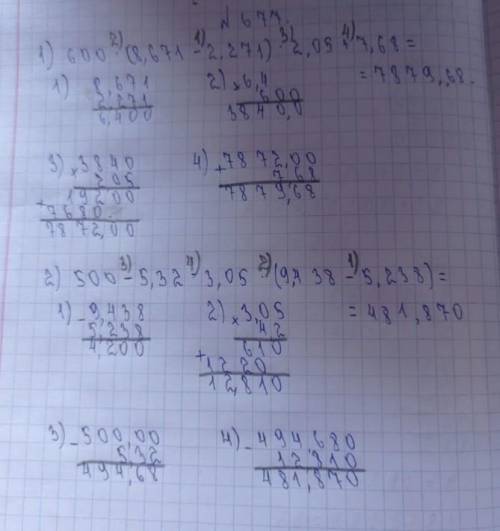 № 677.
1) 600 2) (8,671 1) - 2,271) 3) 2,05 4) 7,68 =
= 7879,68.
1) 8,671
2,271
6,400
2) × 6,4
600
3840,0
3) × 3840
205
+ 19200
7680
7872,00
4) + 7872,00
7,68
7879,68
2) 500 3) - 5,32 4) 3,05 2) (9,438 1) - 5,238) =
= 481,870
1) - 9,438
5,238
4,200
2) × 3,05
42
+ 610
1220
12,810
3) - 500,00
5,32
494,68
4) - 494,680
12,810
481,870